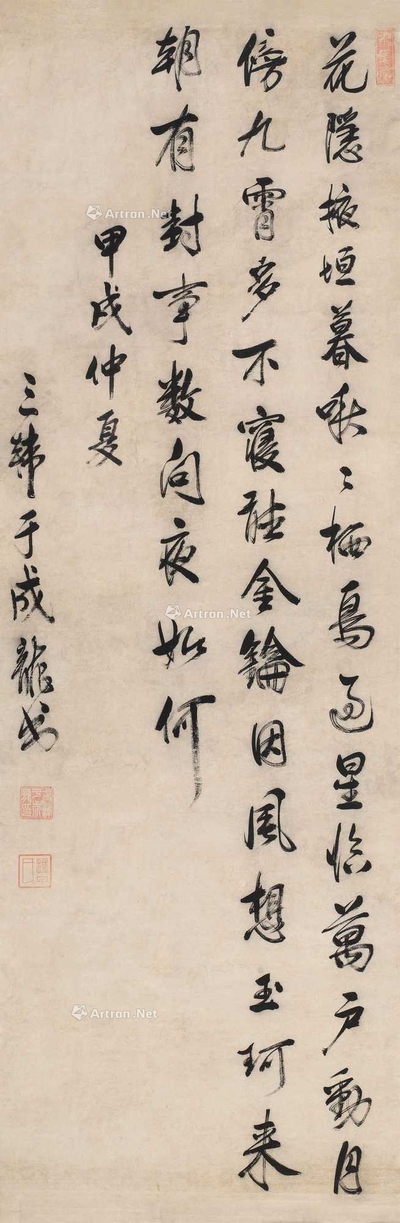 花隱掖垣暮啾〻栖鳥過星臨萬户動月
傍九霄多不寢聽金鑰因風想玉珂来
朝有封事数問夜如何
甲戌仲夏
三韓于成龍书
Artron.Net
Artron.Net
Artron.Net